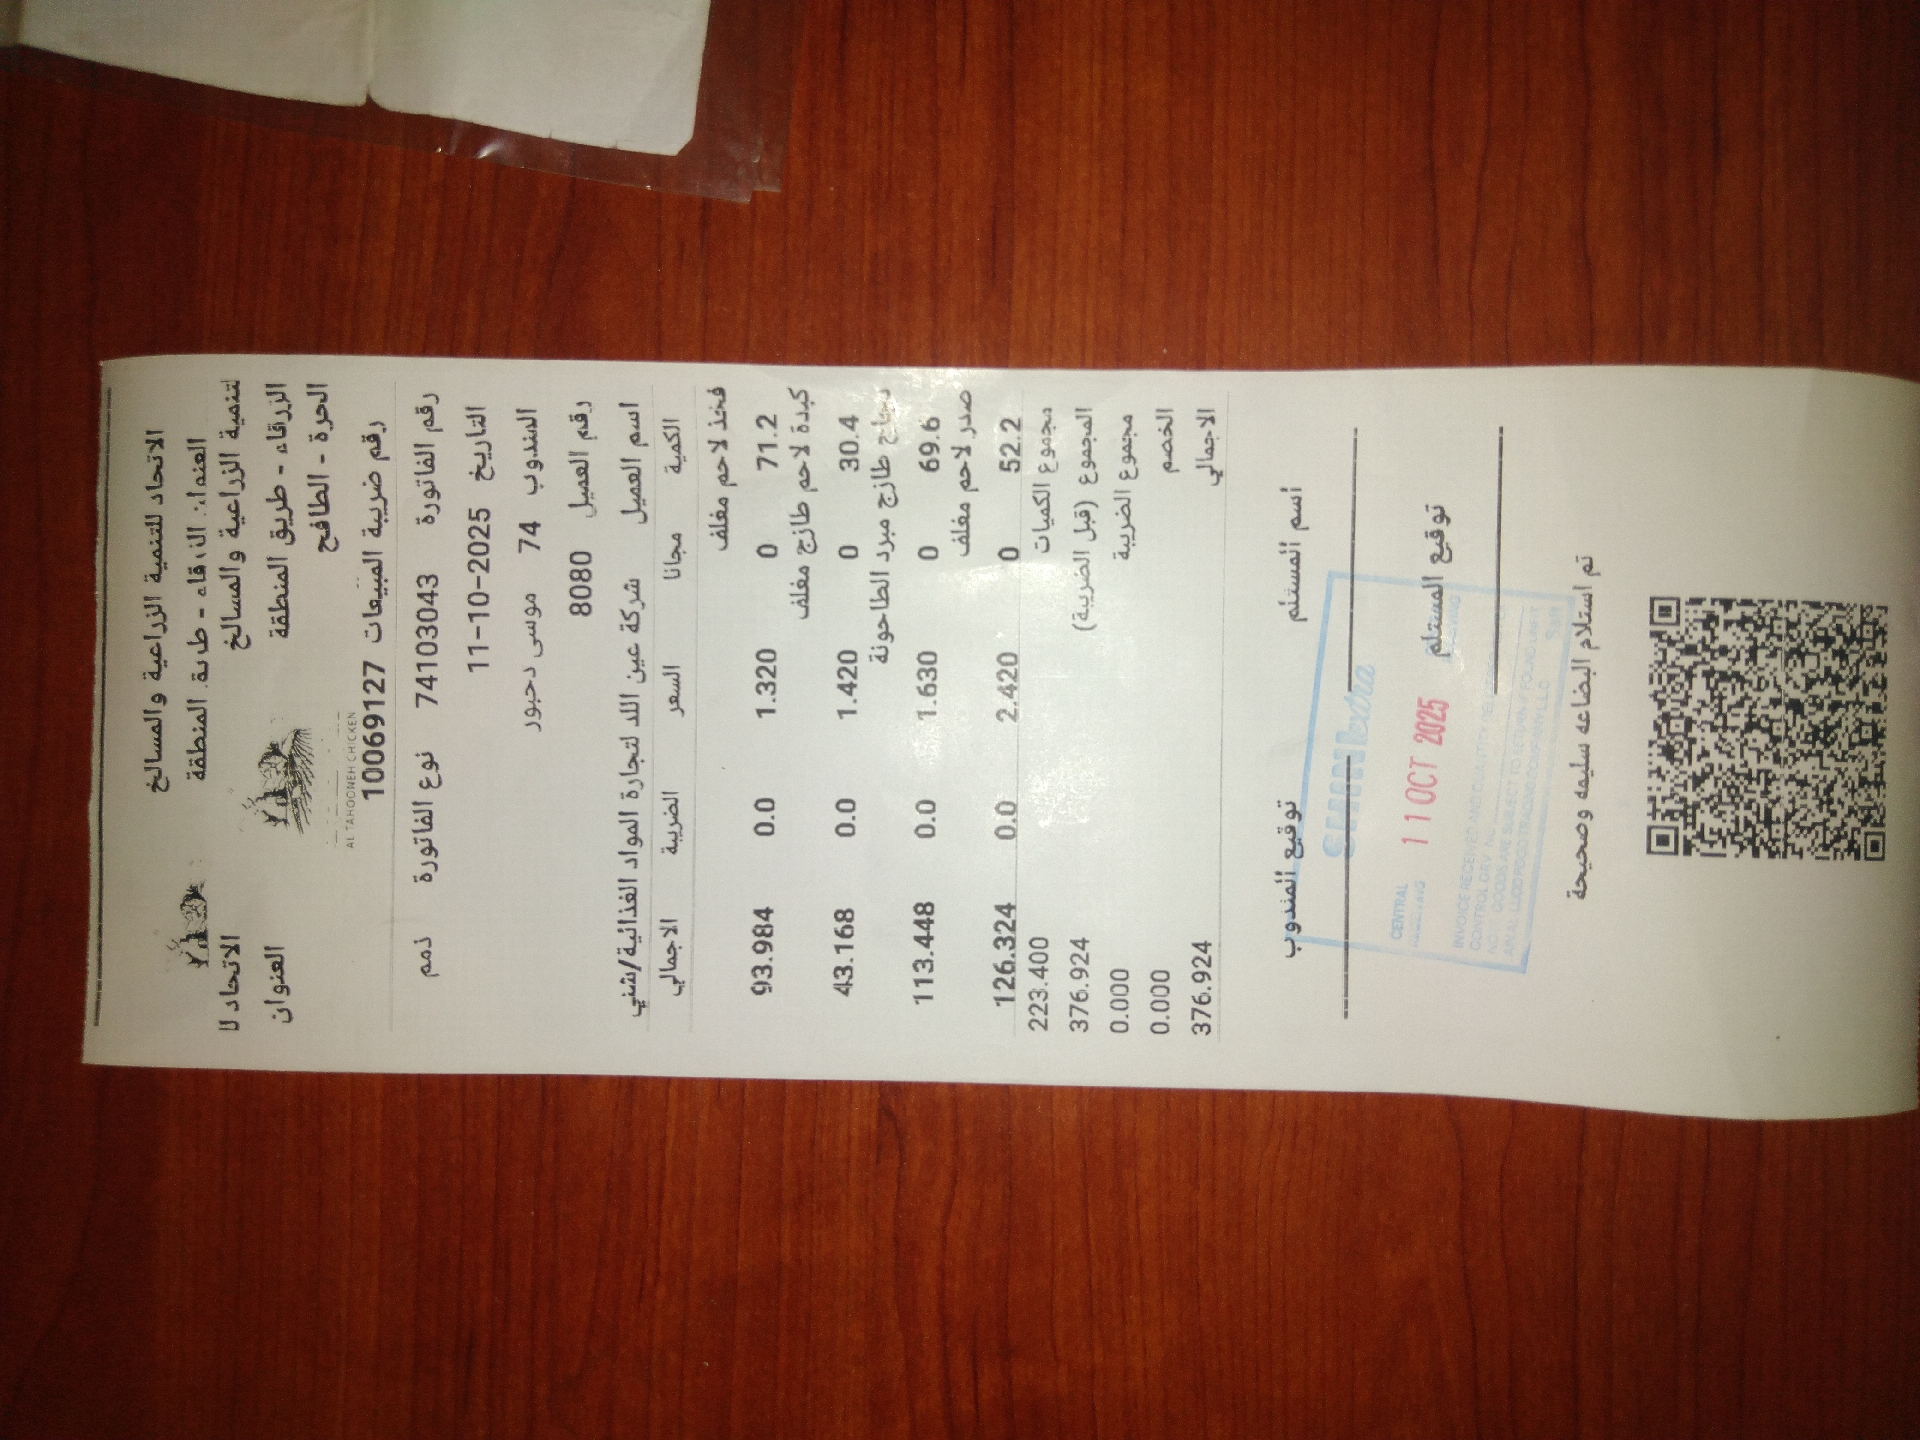 الاتحاد للتنمية الزراعية والمسالخ
العنوان: الزرقاء - طريق المنطقة
الاتحاد لا
لتنمية الزراعية والمسالخ
العنوان
الزرقاء - طريق المنطقة
الحرة - الطافح
AL TAHOONEH CHICKEN
رقم ضريبة المبيعات 10069127
رقم الفاتورة 74103043 نوع الفاتورة ذمم
التاريخ 11-10-2025
المندوب 74 موسى دحبور
رقم العميل 8080
اسم العميل شركة عين اللد لتجارة المواد الغذائية/شني
الكمية مجانا السعر الضريبة الاجمالي
فخذ لاحم مغلف
71.2 0 1.320 0.0 93.984
كبدة لاحم طازج مغلف
30.4 0 1.420 0.0 43.168
دجاج طازج مبرد الطاحونة
69.6 0 1.630 0.0 113.448
صدر لاحم مغلف
52.2 0 2.420 0.0 126.324
مجموع الكميات 223.400
المجموع (قبل الضريبة) 376.924
مجموع الضريبة 0.000
الخصم 0.000
الاجمالي 376.924
اسم المستلم توقيع المندوب
توقيع المستلم
CENTRAL
11 OCT 2025
INVOICE RECEIVED AND QUALITY
CONTROL
GOODS ARE SUBJECT TO RETURN IF FOUND UNFIT
تم استلام البضاعه سليمه وصحيحة